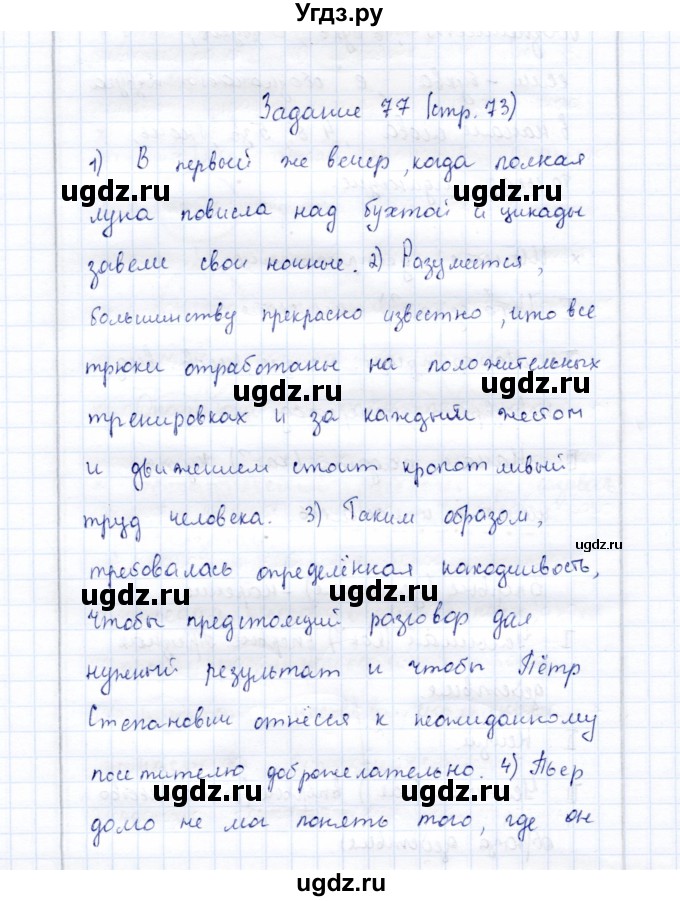 Угдз.ру
Задание 77 (стр. 73)
1) В первый же вечер, когда полная
ugdz.ru ugdz.ru
луна повисла над бухтой и цикады
завели свои ночные. 2) Разумеется,
большинству прекрасно известно, что все
трюки отработаны на положительных
ugdz.ru ugdz.ru
тренировках и за каждым жестом
и движением стоит кропотливый
труд человека. 3) Таким образом,
ugdz.ru
требовалась определённая находчивость,
ugdz.ru ugdz.ru
чтобы предстоящий разговор дал
нужный результат и чтобы Пётр
Степанович отнёсся к неожиданному
посетителю доброжелательно. 4) Пьер
ugdz.ru ugdz.ru
долго не мог понять того, где он
ugdz.ru